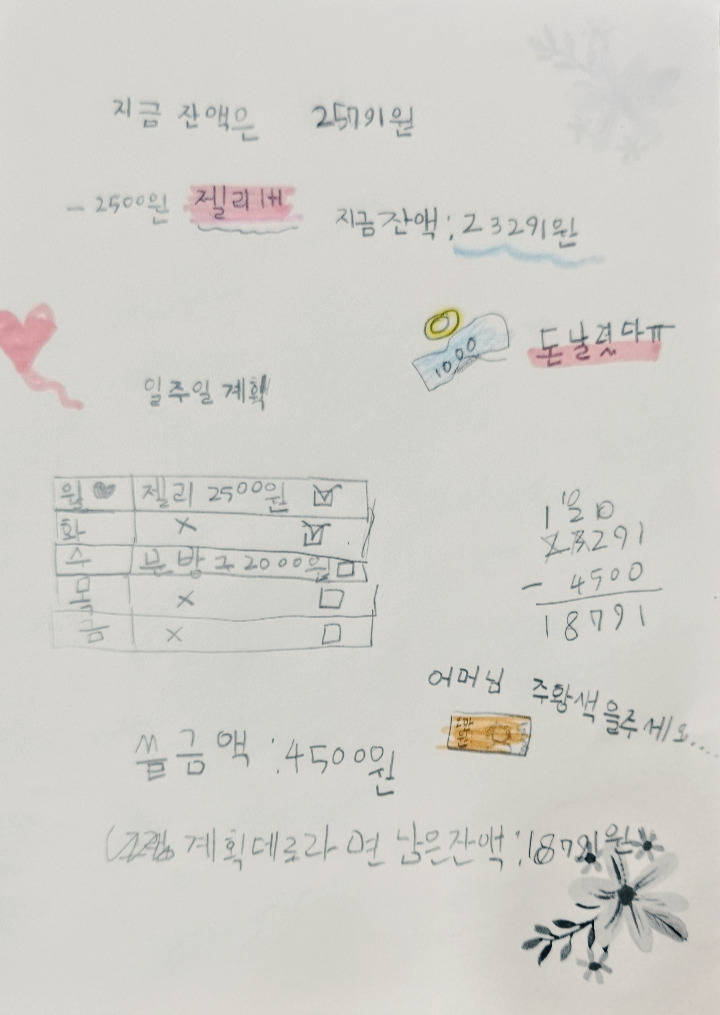 지금 잔액은 25791원
-2500원 젤리 1+1 지금잔액: 23291원
1000 돈 날렸다ㅠ
일주일 계획
월 젤리 2500원
화 ×
수 문방구 2000원
목 ×
금 ×
23291
- 4500
18791
어머님 주황색을주세요....
쓸금액 : 4500원
계획데로라면 남은잔액: 18791원